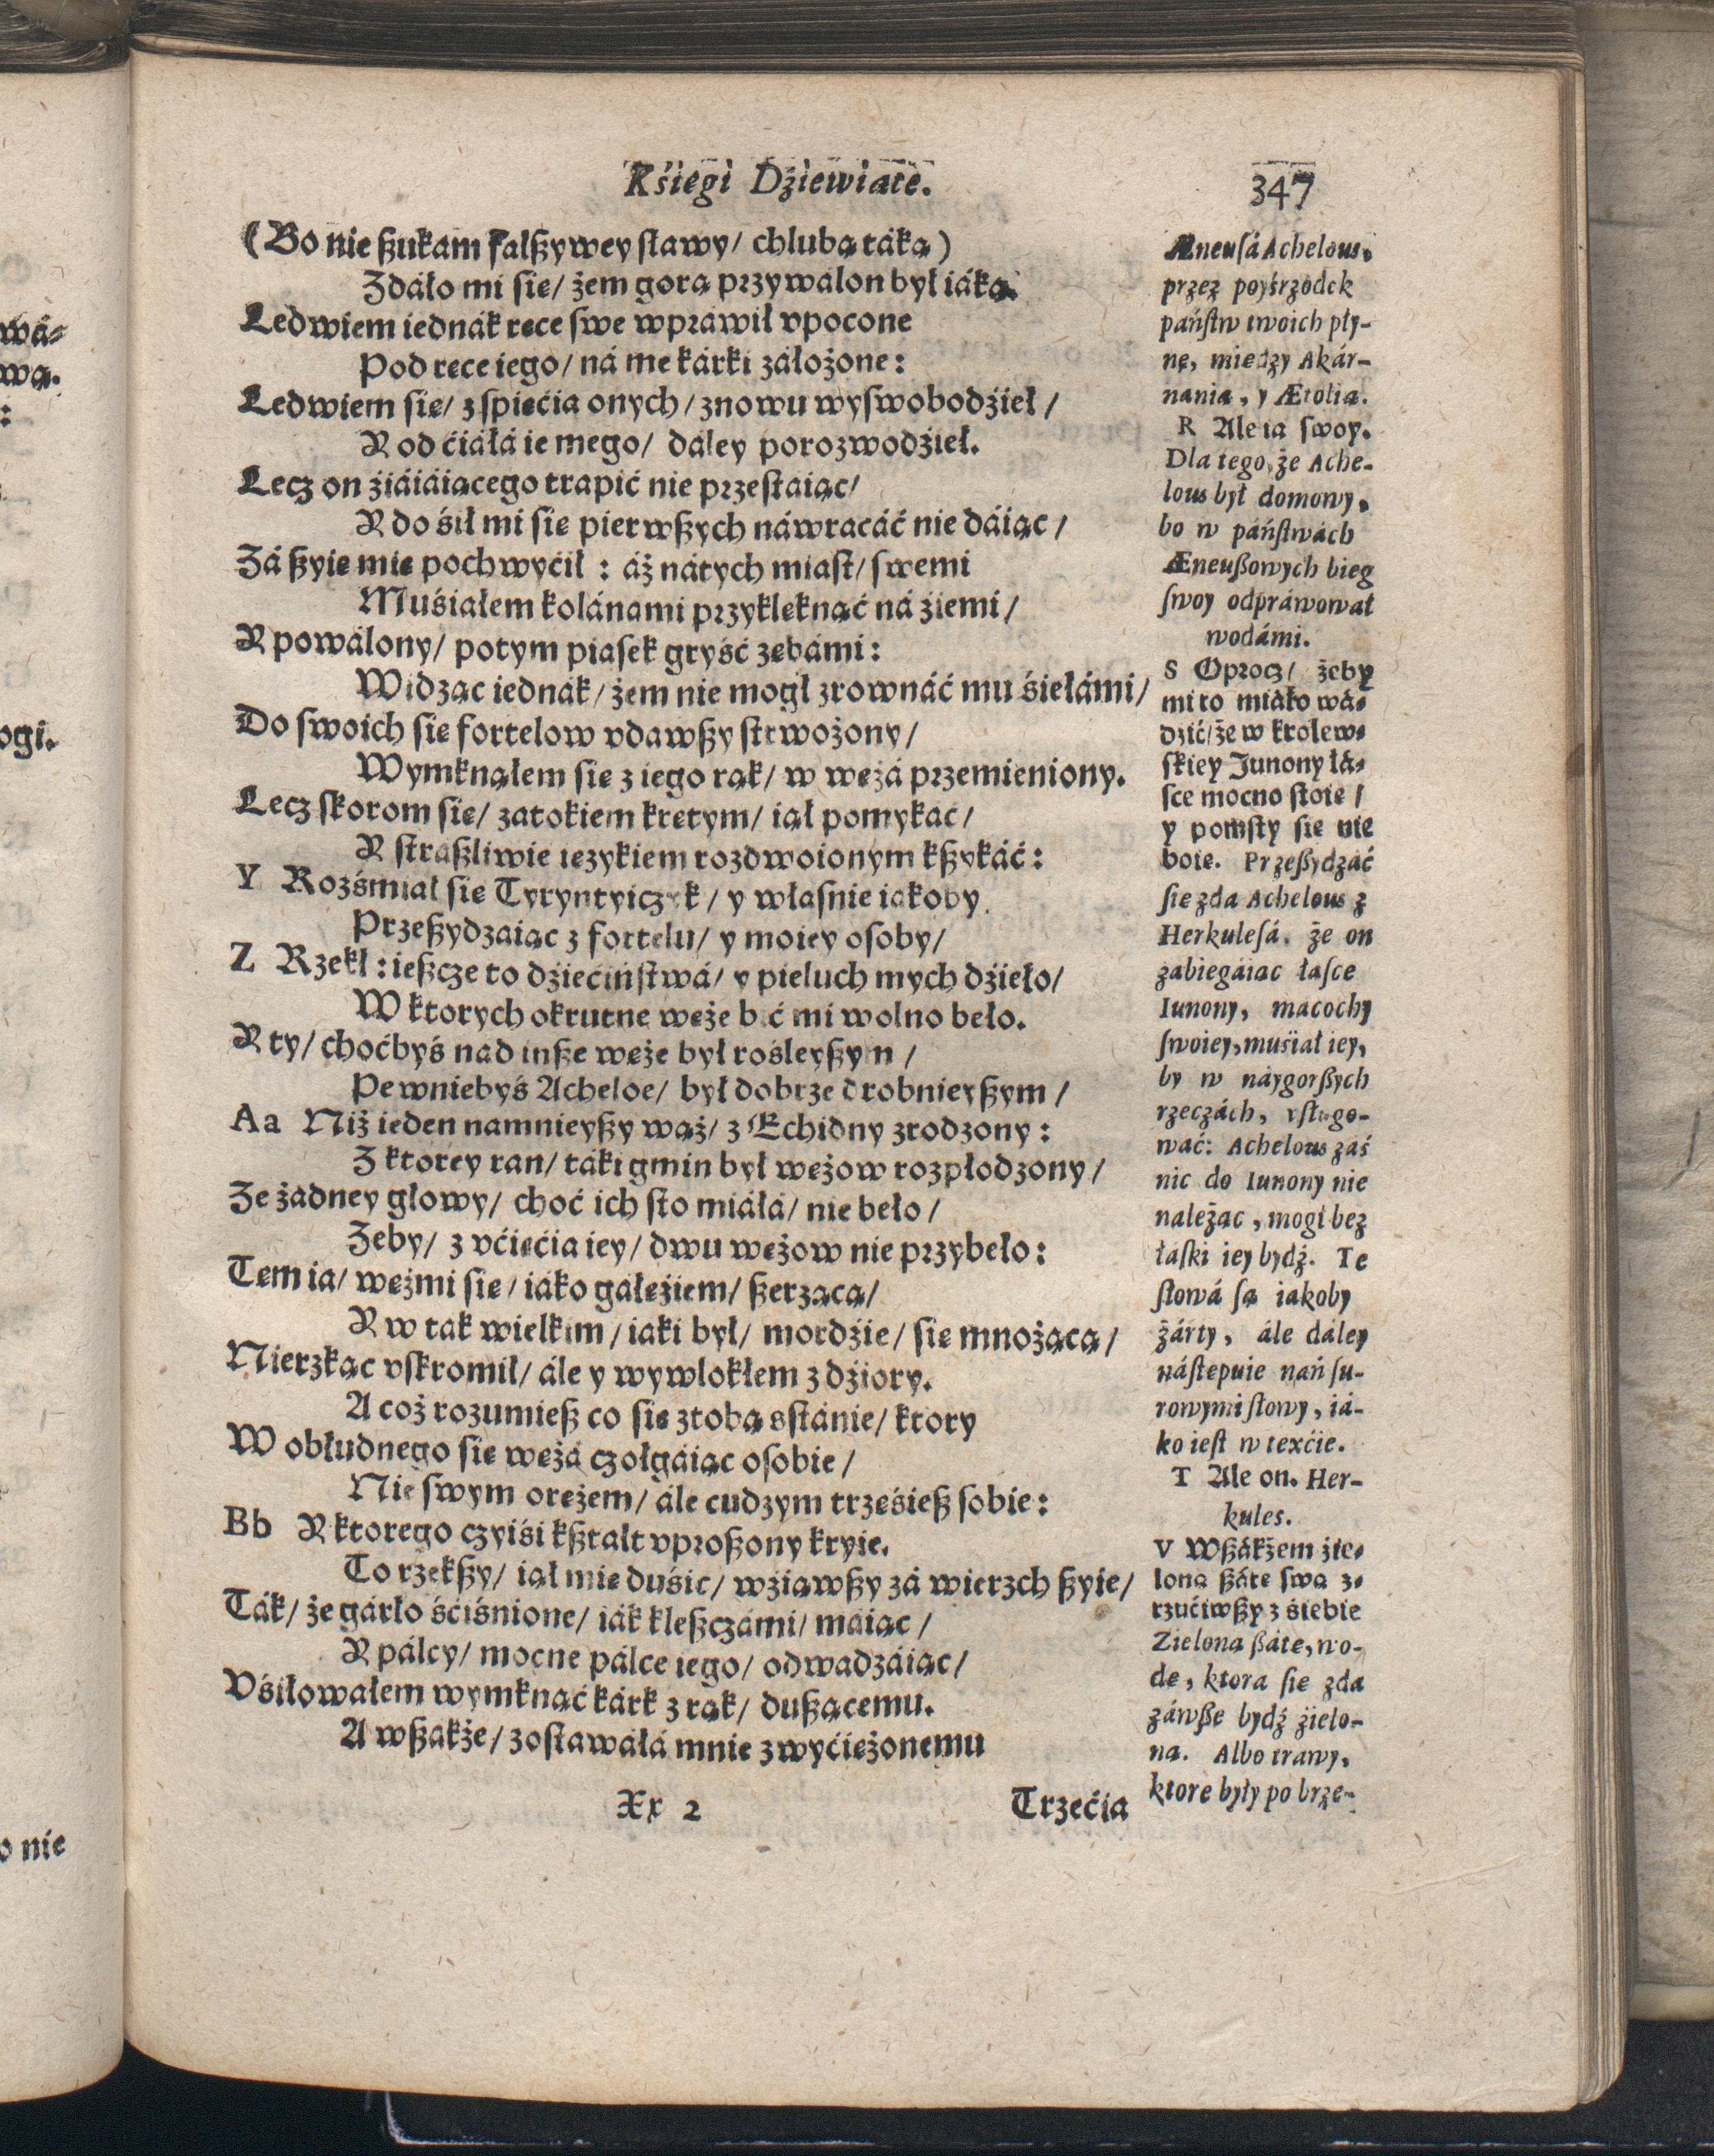 Kśięgi Dźiewiąte.
347
(Bo nie ßukam fałßywey sławy/ chlubą táką)
Zdáło mi się/ żem gorą przywálon był iáką.
Ledwiem iednák ręce swe wpráwił vpocone
Pod ręce iego/ ná me kárki záłożone:
Ledwiem się/ z spięćia onych/ znowu wyswobodźieł/
A od ćiáłá ie mego/ dáley porozwodźieł.
Lecz on źiáiáiącego trapić nie przestaiąc/
A do śił mi się pierwßych náwracáć nie dáiąc/
Zá ßyię mię pochwyćił: áż nátych miast/ swemi
Muśiałem kolánami przyklęknąć ná źiemi/
A powálony/ potym piasek gryść zębámi:
Widząc iednák/ żem nie mogł zrownáć mu śiełámi/
Do swoich się fortelow vdawßy strwożony/
Wymknąłem się z iego rąk/ w wężá przemieniony.
Lecz skorom się/ zatokiem krętym/ iął pomykać/
A straßliwie ięzykiem rozdwoionym kßykáć:
Y Rozśmiał się Tyryntyiczyk/ y własnie iakoby
Przeßydzaiąc z fortelu/ y moiey osoby/
Z Rzekł: ießcze to dźiećiństwá/ y pieluch mych dźieło/
W ktorych okrutne węże bić mi wolno beło.
A ty/ choćbyś nad inße węże był rośleyßym/
Pewniebyś Acheloe/ był dobrze drobnieyßym/
Aa Niż ieden namnieyßy wąż/ z Echidny zrodzony:
Z ktorey ran/ táki gmin był wężow rozpłodzony/
Ze żadney głowy/ choć ich sto miáłá/ nie beło/
Zeby/ z vćięćia iey/ dwu wężow nie przybeło:
Tem ia/ wężmi się/ iáko gáłęźiem/ ßerzącą/
A w tak wielkim/ iaki był/ mordźie/ się mnożącą/
Nierzkąc vskromił/ ále y wywlokłem z dźiory.
A coż rozumieß co się ztobą sstánie/ ktory
W obłudnego się wężá czołgáiąc osobie/
Nie swym orężem/ ále cudzym trzęśieß sobie:
Bb A ktorego czyiśi kßtałt vproßony kryie.
To rzekßy/ iął mię duśić/ wźiąwßy zá wierzch ßyie/
Ták/ że gárło śćiśnione/ iák kleßczámi/ máiąc/
A pálcy/ mocne pálce iego/ odwadzáiąc/
Vśiłowałem wymknąć kárk z rąk/ dußącemu.
A wßakże/ zostawáłá mnie zwyćiężonemu
Xx 2
Trzećia
Æneusá Achelous,
przez poyśrzodek
państw twoich pły-
nę, między Akár-
nanią, y Ætolią.
R Ale ia swoy.
Dla tego, że Ache-
lous był domowy,
bo w páństwách
Æneußowych bieg
swoy odpráwował
wodámi.
S Oprocz/ żeby
mi to miáło wá-
dzić/ że w krolew-
skiey Junony łá-
sce mocno stoię/
y pomsty się nie
boię. Przeßydzáć
się zda Achelous z
Herkulesá, że on
zabiegáiąc łasce
Iunony, macochy
swoiey, muśiał iey,
by w náygorßych
rzeczách, vsługo-
wáć: Achelous záś
nic do Iunony nie
należąc, mogł bez
łáski iey bydź. Te
słowá są iakoby
żárty, ále dáley
nástępuie nań su-
rowymi słowy, iá-
ko iest w texćie.
T Ale on. Her-
kules.
V Wßákżem źie-
loną ßátę swą z-
rzućiwßy z śiebie
Zieloną ßátę, wo-
dę, ktora się zda
záwße bydź źielo-
na. Albo trawy,
ktore były po brze-